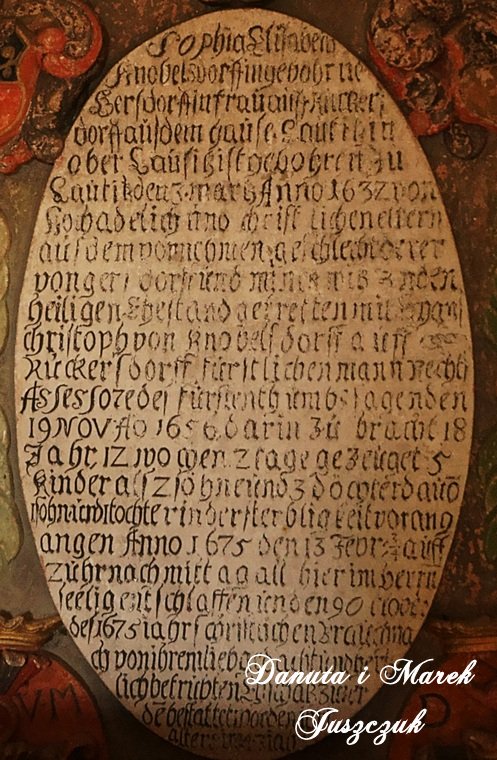 Sophia Elisabeth
Knobelsdorff in gebohrne
Gersdorff in frau auff Rückers
dorff aus dem hause Lautikin
ober Lausitz ist gebohren zu
Lautik den 3 martz Anno 1632 von
Hochadelich und christlichen eltern
aus dem vornehmen geschlecht derer
von gers dorf und
heiligen Ehestand getretten mit
christoph von Knobelsdorff auff
Rückersdorff fürstlichen mann Rechts
Assessore des fürstenthumbs sagen den
19 NOV AO 1656 darin zu bracht 18
Jahr 12 wochen 2 tage gezeuget 5
Kinder als 2 söhne und 3 döchter davō
söhn und tochter in der sterbligkeit vorang
angen Anno 1675 den 13 Febr auff
zuhr nachmittag all hier im herrn
seeligentschlaffen und den 9 octobr
des 1675 jahrs christlichen brauch na
ch von ihrem
lich betrübten
bestattet worden
alters
Danuta i Marek
Juszczuk